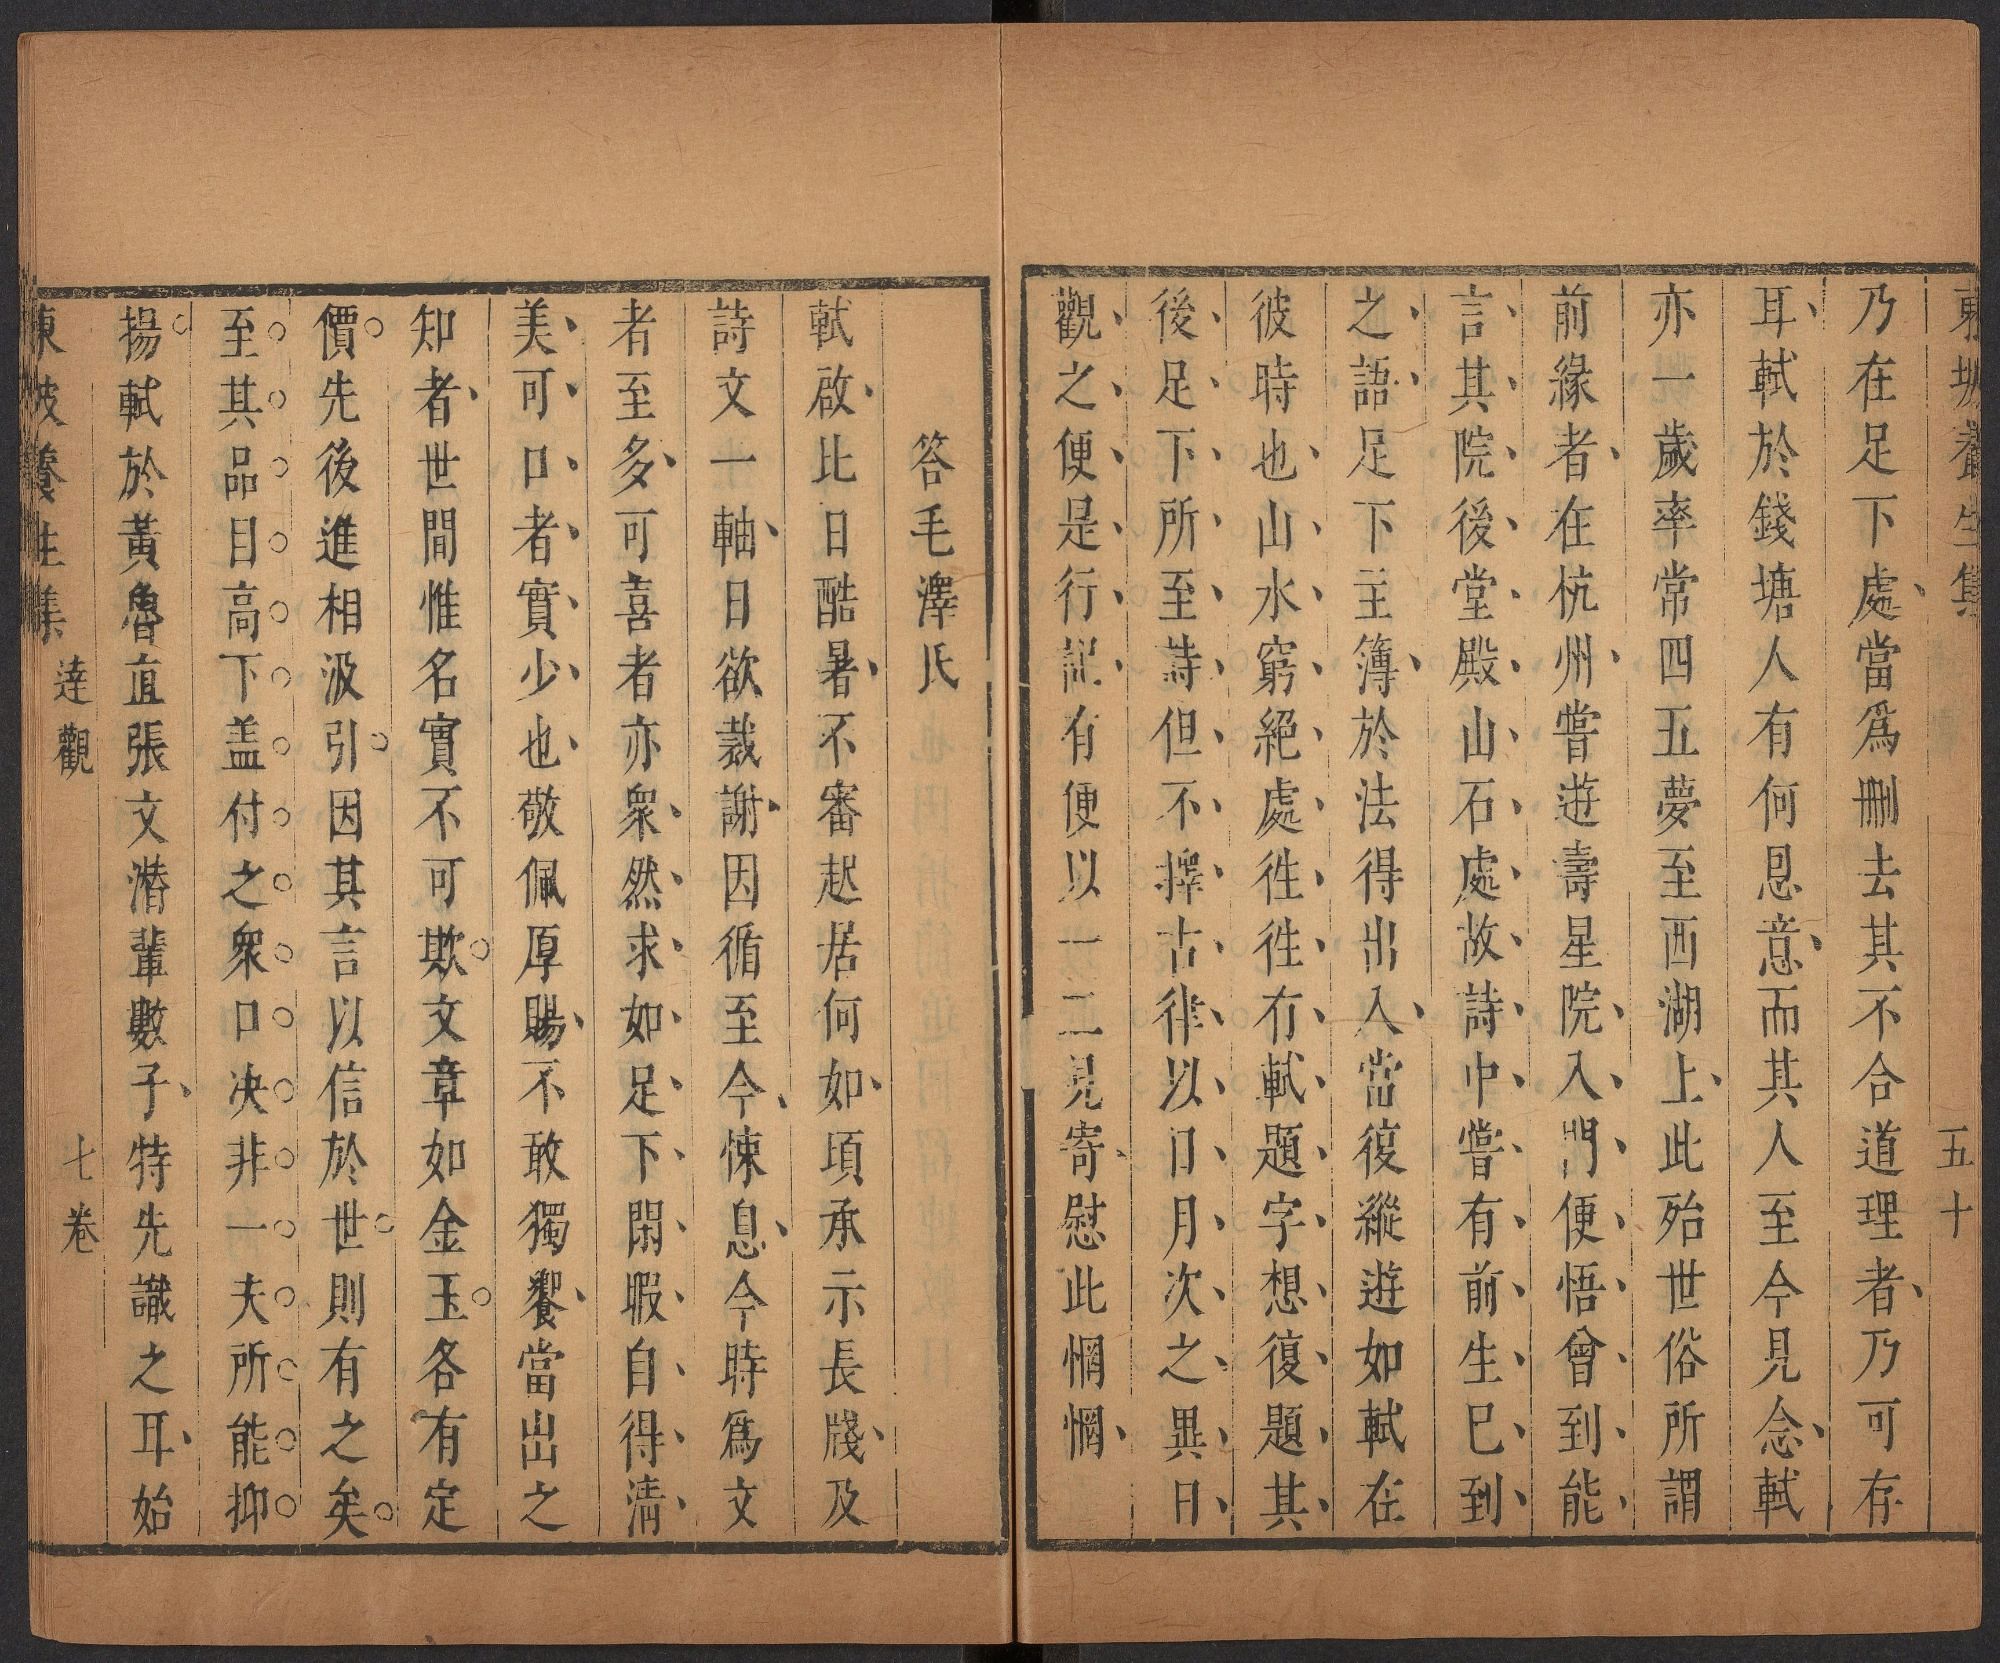 東坡養生集 五十
乃在足下處當爲刪去其不合道理者乃可存
耳軾於錢塘人有何恩意而其人至今見念軾
亦一歲率常四五夢至西湖上此殆世俗所謂
前緣者在杭州嘗遊壽星院入門便悟曾到能
言其院後堂殿山石處故詩中嘗有前生已到
之語足下主簿於法得出入當復縱遊如軾在
彼時也山水窮絕處徃徃有軾題字想復題其
後足下所至詩但不擇古律以日月次之異日
觀之便是行記有便以一二見寄慰此惘惘
答毛澤民
軾啟比日酷暑不審起居何如頃承示長牋及
詩文一軸日欲裁謝因循至今悚息今時爲文
者至多可喜者亦衆然求如足下閑暇自得清
美可口者實少也敬佩厚賜不敢獨饗當出之
知者世間惟名實不可欺文章如金玉各有定
價先後進相汲引因其言以信於世則有之矣
至其品目高下盖付之衆口决非一夫所能抑
揚軾於黃魯直張文潛輩數子特先識之耳始
東坡養生集 達觀 七卷